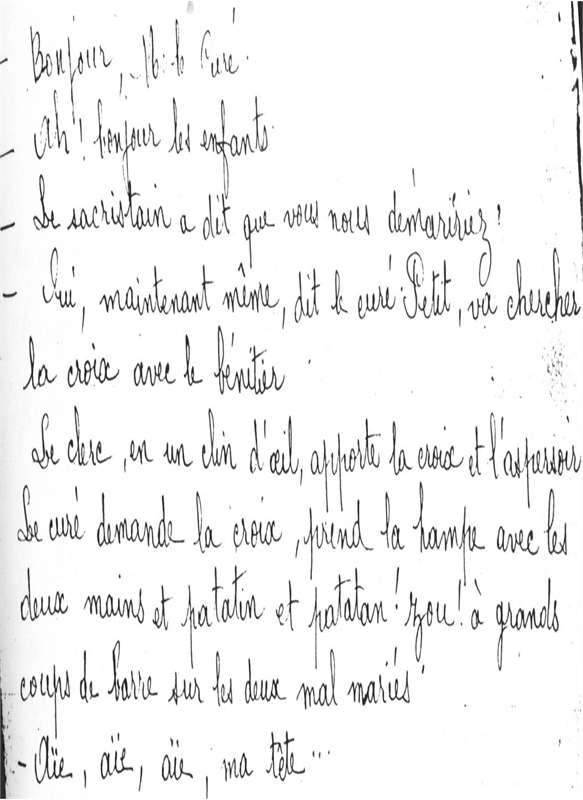 - Bonjour, M. le Curé.
- Ah! bonjour les enfants.
- Le sacristain a dit que vous nous démaririez?
- Oui, maintenant même, dit le curé. Petit, va chercher
la croix avec le bénitier.
Le clerc, en un clin d'œil, apporte la croix et l'aspersoir
Le curé demande la croix, prend la hampe avec les
deux mains et patatin et patatan! zou! à grands
coups de barre sur les deux mal mariés.
- Aïe, aïe, aïe, ma tête...